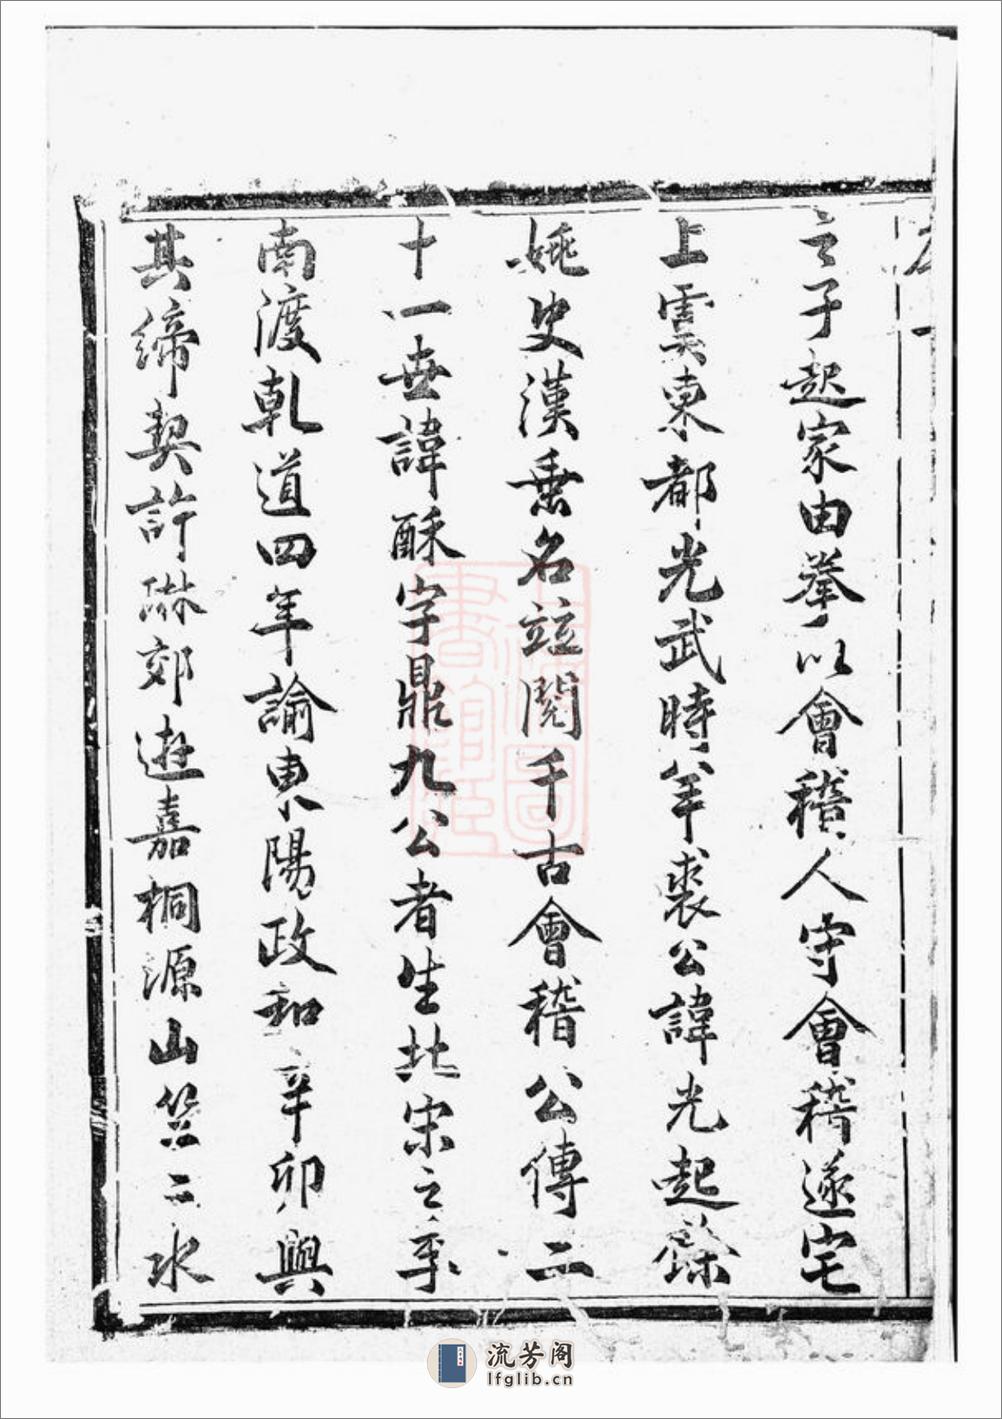 之子起家由拳以會稽人守會稽遂宅
上虞東都光武時羊裘公諱光起餘
姚史漢垂名竝閱千古會稽公傳二
十一世諱酥字鼎九公者生北宋之季
南渡乾道四年諭東陽政和辛卯與
其締契許琳郊遊嘉桐源山竺二水
上海圖書館藏
流芳阁
lfglib.cn